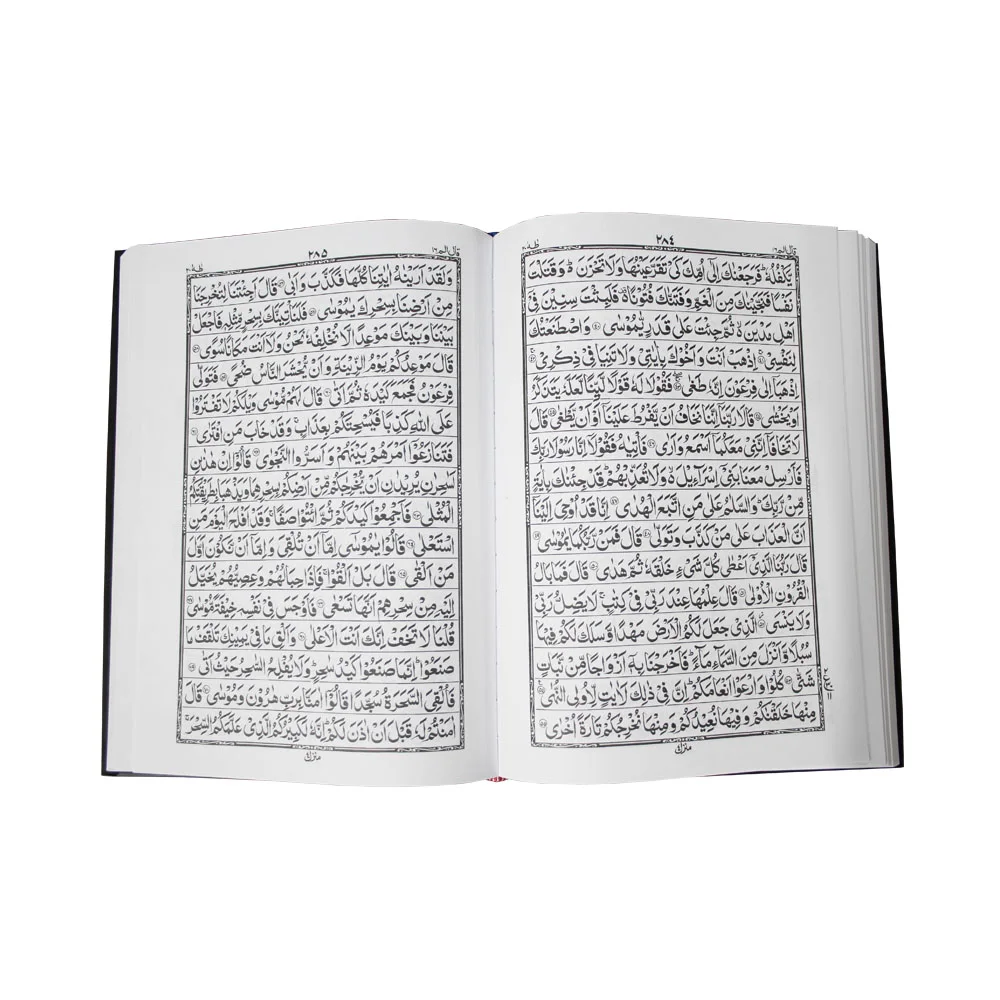 قَالَ اَلَمْ ١٦ ٢٨٤ طٰهٰ ٢٠
يَّكْفُلُهٗ ؕ فَرَجَعْنٰكَ اِلٰٓى اُمِّكَ كَیْ تَقَرَّ عَيْنُهَا وَلَا تَحْزَنَ ؕ وَ قَتَلْتَ
نَفْسًا فَنَجَّيْنٰكَ مِنَ الْغَمِّ وَفَتَنّٰكَ فُتُوْنًا ۬ فَلَبِثْتَ سِنِيْنَ فِیْٓ
اَهْلِ مَدْيَنَ ۙ ثُمَّ جِئْتَ عَلٰى قَدَرٍ يّٰمُوْسٰى ﴿٤٠﴾ وَاصْطَنَعْتُكَ
لِنَفْسِیْ ﴿٤١﴾ اِذْهَبْ اَنْتَ وَ اَخُوْكَ بِاٰيٰتِیْ وَلَا تَنِيَا فِیْ ذِكْرِیْ ﴿٤٢﴾
اِذْهَبَاۤ اِلٰى فِرْعَوْنَ اِنَّهٗ طَغٰى ﴿٤٣﴾ فَقُوْلَا لَهٗ قَوْلًا لَّيِّنًا لَّعَلَّهٗ يَتَذَكَّرُ
اَوْ يَخْشٰى ﴿٤٤﴾ قَالَا رَبَّنَاۤ اِنَّنَا نَخَافُ اَنْ يَّفْرُطَ عَلَيْنَاۤ اَوْ اَنْ يَّطْغٰى ﴿٤٥﴾ قَالَ
لَا تَخَافَاۤ اِنَّنِیْ مَعَكُمَاۤ اَسْمَعُ وَاَرٰى ﴿٤٦﴾ فَاْتِيٰهُ فَقُوْلَاۤ اِنَّا رَسُوْلَا رَبِّكَ
فَاَرْسِلْ مَعَنَا بَنِیْۤ اِسْرَآءِيْلَ ۬ۙ وَلَا تُعَذِّبْهُمْ ؕ قَدْ جِئْنٰكَ بِاٰيَةٍ
مِّنْ رَّبِّكَ ؕ وَالسَّلٰمُ عَلٰى مَنِ اتَّبَعَ الْهُدٰى ﴿٤٧﴾ اِنَّا قَدْ اُوْحِیَ اِلَيْنَاۤ
اَنَّ الْعَذَابَ عَلٰى مَنْ كَذَّبَ وَتَوَلّٰى ﴿٤٨﴾ قَالَ فَمَنْ رَّبُّكُمَا يٰمُوْسٰى ﴿٤٩﴾
قَالَ رَبُّنَا الَّذِیْۤ اَعْطٰى كُلَّ شَیْءٍ خَلْقَهٗ ثُمَّ هَدٰى ﴿٥٠﴾ قَالَ فَمَا بَالُ
الْقُرُوْنِ الْاُوْلٰى ﴿٥١﴾ قَالَ عِلْمُهَا عِنْدَ رَبِّیْ فِیْ كِتٰبٍ ۚ لَا يَضِلُّ رَبِّیْ
وَلَا يَنْسَى ﴿٥٢﴾ الَّذِیْ جَعَلَ لَكُمُ الْاَرْضَ مَهْدًا وَّ سَلَكَ لَكُمْ فِيْهَا
سُبُلًا وَّ اَنْزَلَ مِنَ السَّمَآءِ مَآءً ؕ فَاَخْرَجْنَا بِهٖۤ اَزْوَاجًا مِّنْ نَّبَاتٍ
شَتّٰى ﴿٥٣﴾ كُلُوْا وَارْعَوْا اَنْعَامَكُمْ ؕ اِنَّ فِیْ ذٰلِكَ لَاٰيٰتٍ لِّاُولِی النُّهٰى ﴿٥٤﴾
مِنْهَا خَلَقْنٰكُمْ وَ فِيْهَا نُعِيْدُكُمْ وَ مِنْهَا نُخْرِجُكُمْ تَارَةً اُخْرٰى ﴿٥٥﴾
قَالَ اَلَمْ ١٦ ٢٨٥ طٰهٰ ٢٠
وَلَقَدْ اَرَيْنٰهُ اٰيٰتِنَا كُلَّهَا فَكَذَّبَ وَ اَبٰى ﴿٥٦﴾ قَالَ اَجِئْتَنَا لِتُخْرِجَنَا
مِنْ اَرْضِنَا بِسِحْرِكَ يٰمُوْسٰى ﴿٥٧﴾ فَلَنَاْتِيَنَّكَ بِسِحْرٍ مِّثْلِهٖ فَاجْعَلْ
بَيْنَنَا وَبَيْنَكَ مَوْعِدًا لَّا نُخْلِفُهٗ نَحْنُ وَلَاۤ اَنْتَ مَكَانًا سُوًى ﴿٥٨﴾
قَالَ مَوْعِدُكُمْ يَوْمُ الزِّيْنَةِ وَ اَنْ يُّحْشَرَ النَّاسُ ضُحًى ﴿٥٩﴾ فَتَوَلّٰى
فِرْعَوْنُ فَجَمَعَ كَيْدَهٗ ثُمَّ اَتٰى ﴿٦٠﴾ قَالَ لَهُمْ مُّوْسٰى وَيْلَكُمْ لَا تَفْتَرُوْا
عَلَى اللّٰهِ كَذِبًا فَيُسْحِتَكُمْ بِعَذَابٍ ۚ وَ قَدْ خَابَ مَنِ افْتَرٰى ﴿٦١﴾
فَتَنَازَعُوْۤا اَمْرَهُمْ بَيْنَهُمْ وَ اَسَرُّوا النَّجْوٰى ﴿٦٢﴾ قَالُوْۤا اِنْ هٰذٰىنِ
لَسٰحِرٰنِ يُرِيْدٰنِ اَنْ يُّخْرِجٰكُمْ مِّنْ اَرْضِكُمْ بِسِحْرِهِمَا وَيَذْهَبَا بِطَرِيْقَتِكُمُ
الْمُثْلٰى ﴿٦٣﴾ فَاَجْمِعُوْا كَيْدَكُمْ ثُمَّ ائْتُوْا صَفًّا ۚ وَقَدْ اَفْلَحَ الْيَوْمَ مَنِ
اسْتَعْلٰى ﴿٦٤﴾ قَالُوْا يٰمُوْسٰۤى اِمَّاۤ اَنْ تُلْقِیَ وَ اِمَّاۤ اَنْ نَّكُوْنَ اَوَّلَ
مَنْ اَلْقٰى ﴿٦٥﴾ قَالَ بَلْ اَلْقُوْا ۚ فَاِذَا حِبَالُهُمْ وَعِصِيُّهُمْ يُخَيَّلُ
اِلَيْهِ مِنْ سِحْرِهِمْ اَنَّهَا تَسْعٰى ﴿٦٦﴾ فَاَوْجَسَ فِیْ نَفْسِهٖ خِيْفَةً مُّوْسٰى ﴿٦٧﴾
قُلْنَا لَا تَخَفْ اِنَّكَ اَنْتَ الْاَعْلٰى ﴿٦٨﴾ وَاَلْقِ مَا فِیْ يَمِيْنِكَ تَلْقَفْ مَا
صَنَعُوْا ؕ اِنَّمَا صَنَعُوْا كَيْدُ سٰحِرٍ ؕ وَلَا يُفْلِحُ السَّاحِرُ حَيْثُ اَتٰى ﴿٦٩﴾
فَاُلْقِیَ السَّحَرَةُ سُجَّدًا قَالُوْۤا اٰمَنَّا بِرَبِّ هٰرُوْنَ وَمُوْسٰى ﴿٧٠﴾ قَالَ
اٰمَنْتُمْ لَهٗ قَبْلَ اَنْ اٰذَنَ لَكُمْ ؕ اِنَّهٗ لَكَبِيْرُكُمُ الَّذِیْ عَلَّمَكُمُ السِّحْرَ ۚ
منزل